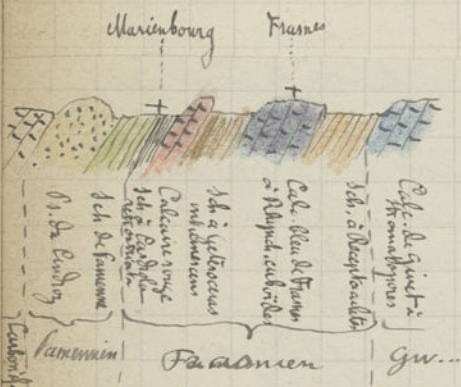 Marienbourg
Frasnes
Ps. du Condroz
Sch de Famenne
Sch à Cardiola
retrostriata
Calcaire rouge
Sch à Getrocrus
intumescens
Calc. bleu de Frasnes
à Rhynch. cuboïdes
Sch. à Receptaculites
Calc. de Givet à
Stromatopores
Famennien
Frasnien
Giv...